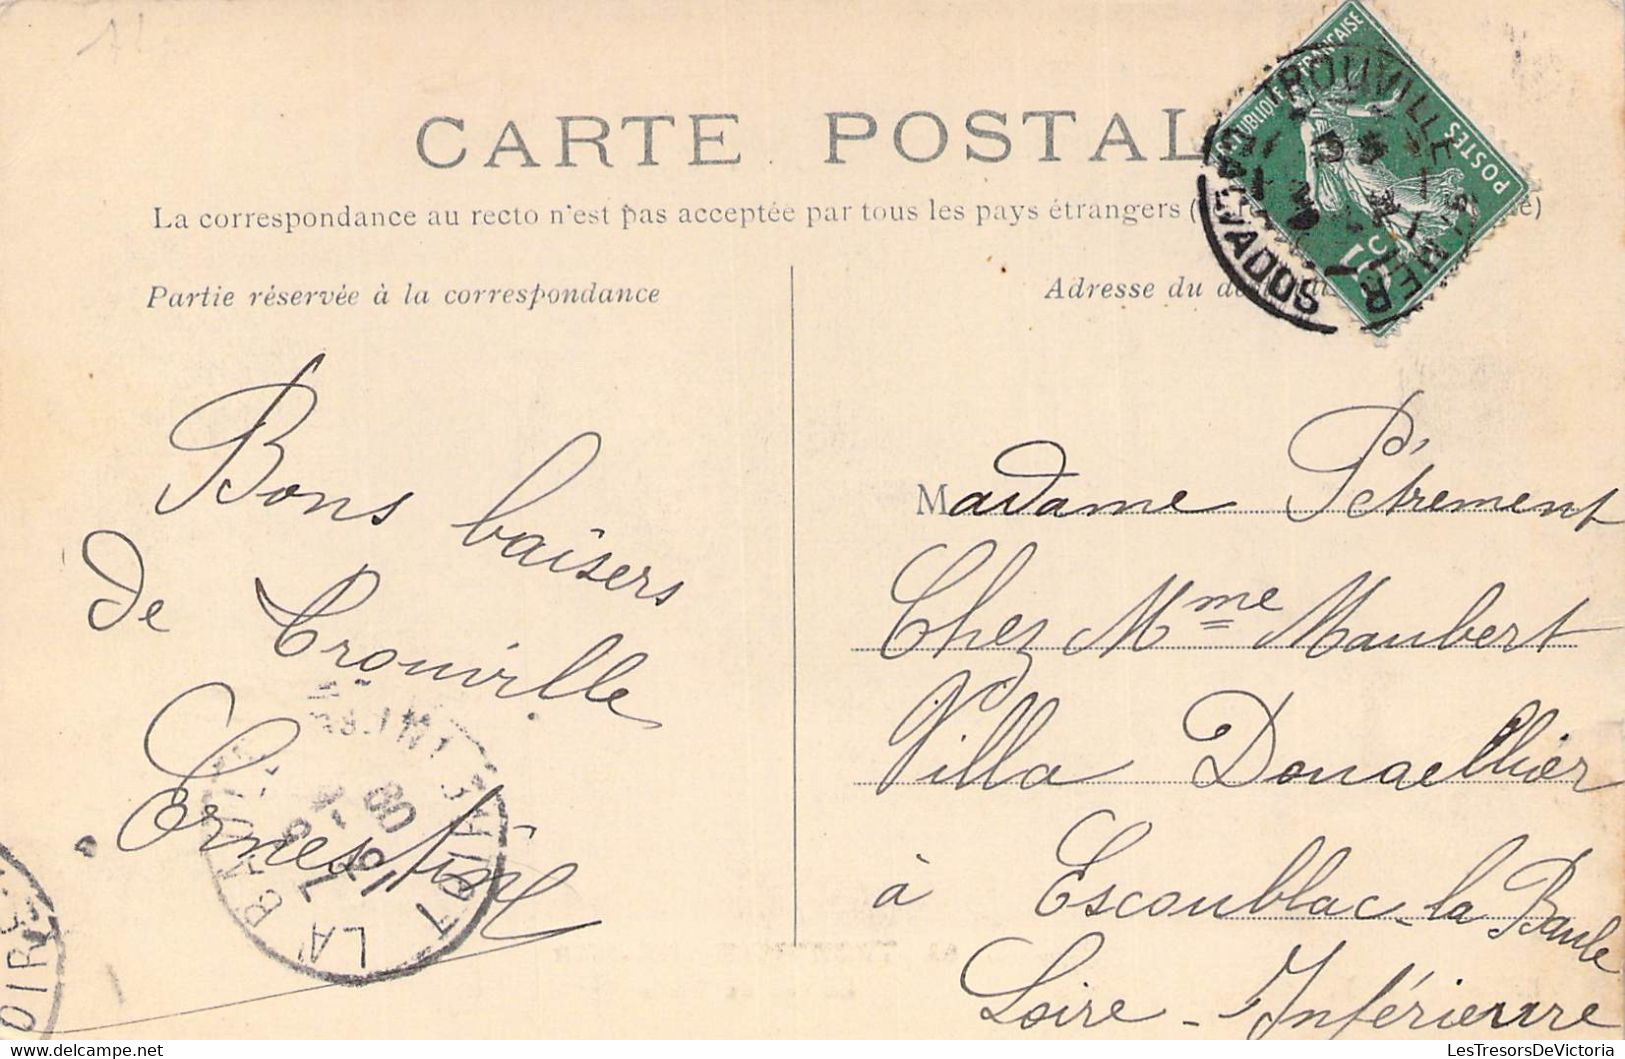 CARTE POSTAL
La correspondance au recto n'est pas acceptée par tous les pays étrangers (
Partie réservée à la correspondance
Adresse du
RÉPUBLIQUE FRANÇAISE
POSTES
5c
TROUVILLE S. MER
CALVADOS
Bons baisers
de Trouville
Ernestine
Madame Pétrement
Chez Mme Maubert
Villa Donaellier
à Escoublac-la Baule
Loire-Inférieure
LA BAULE
LOIRE INFRE
LesTresorsDeVictoria
http://www.delcampe.net